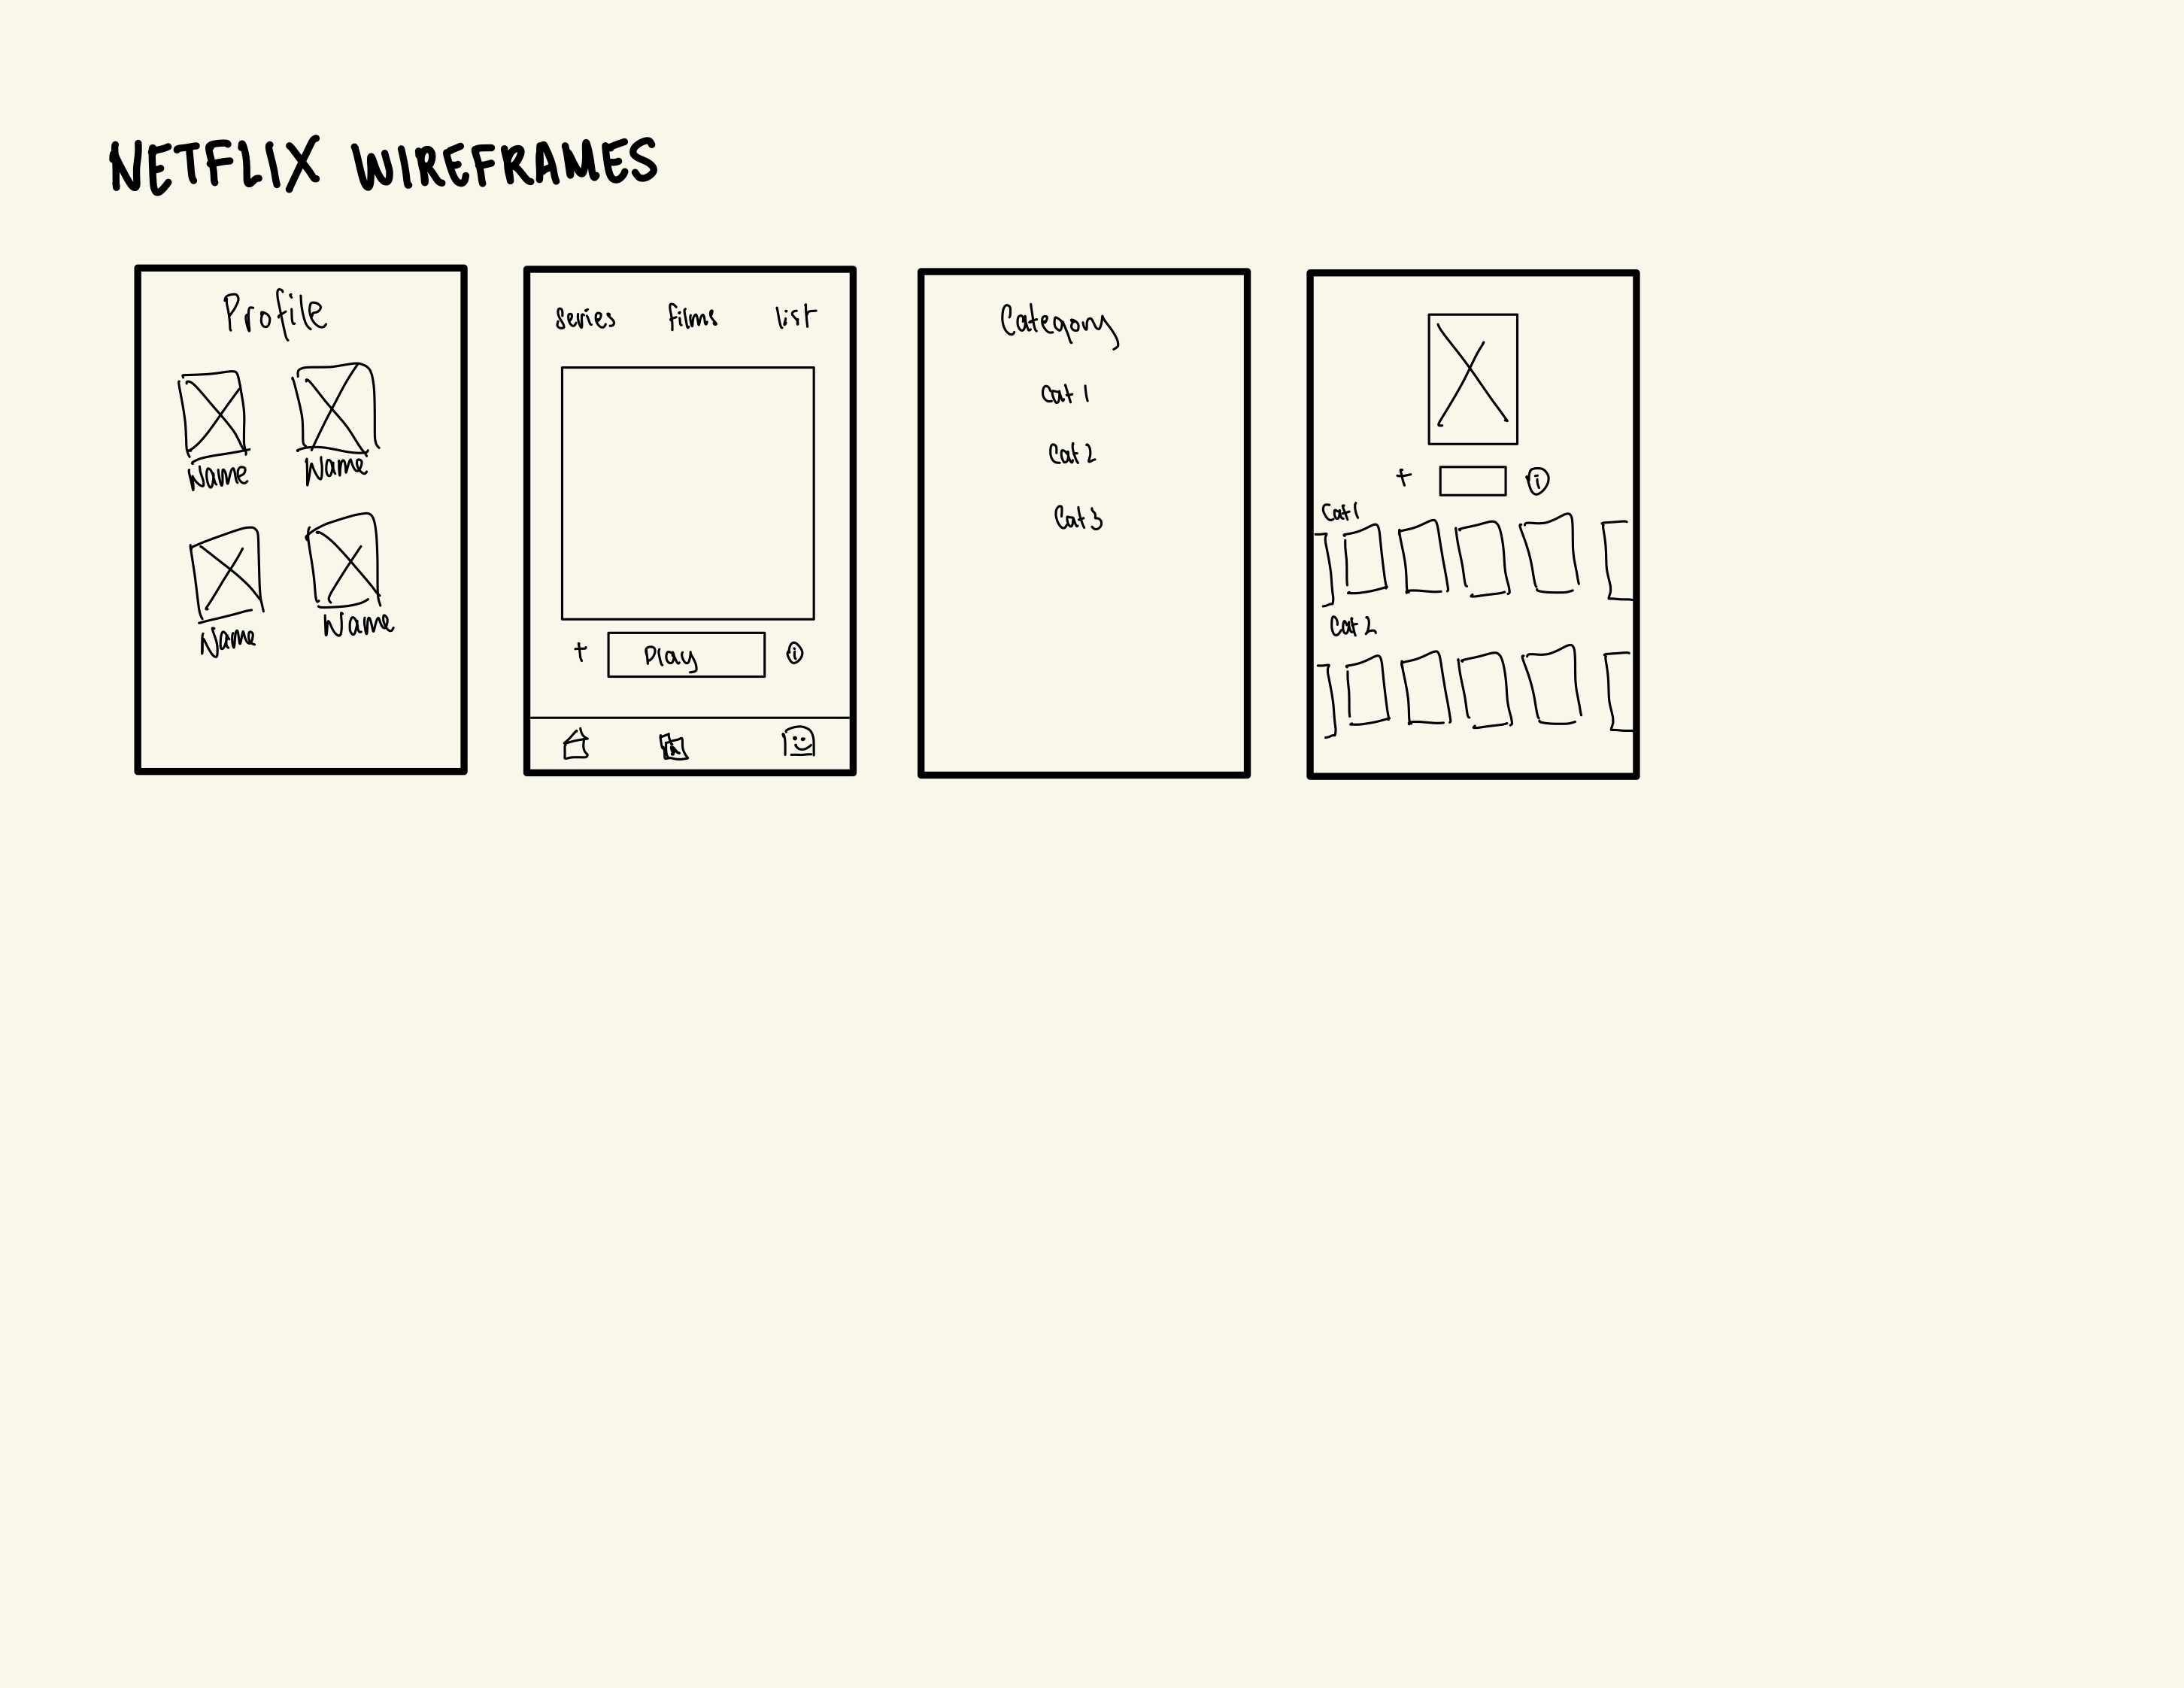 NETFLIX WIREFRAMES
Profile
Name Name
Name Name
Series films list
+ Play i
Category
Cat 1
Cat 2
Cat 3
+ i
Cat 1
Cat 2